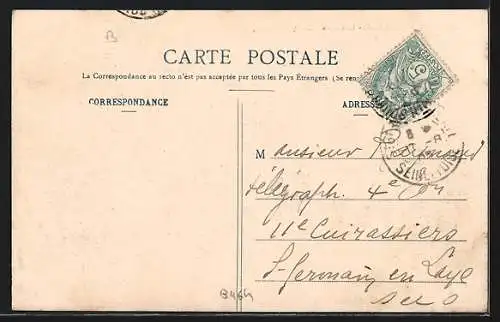 B
CARTE POSTALE
La Correspondance au recto n'est pas acceptée par tous les Pays Étrangers (Se ren
CORRESPONDANCE
ADRES
5
Monsieur
Télégraph. 4e
11e Cuirassiers
St Germain en Laye
S et O
B464